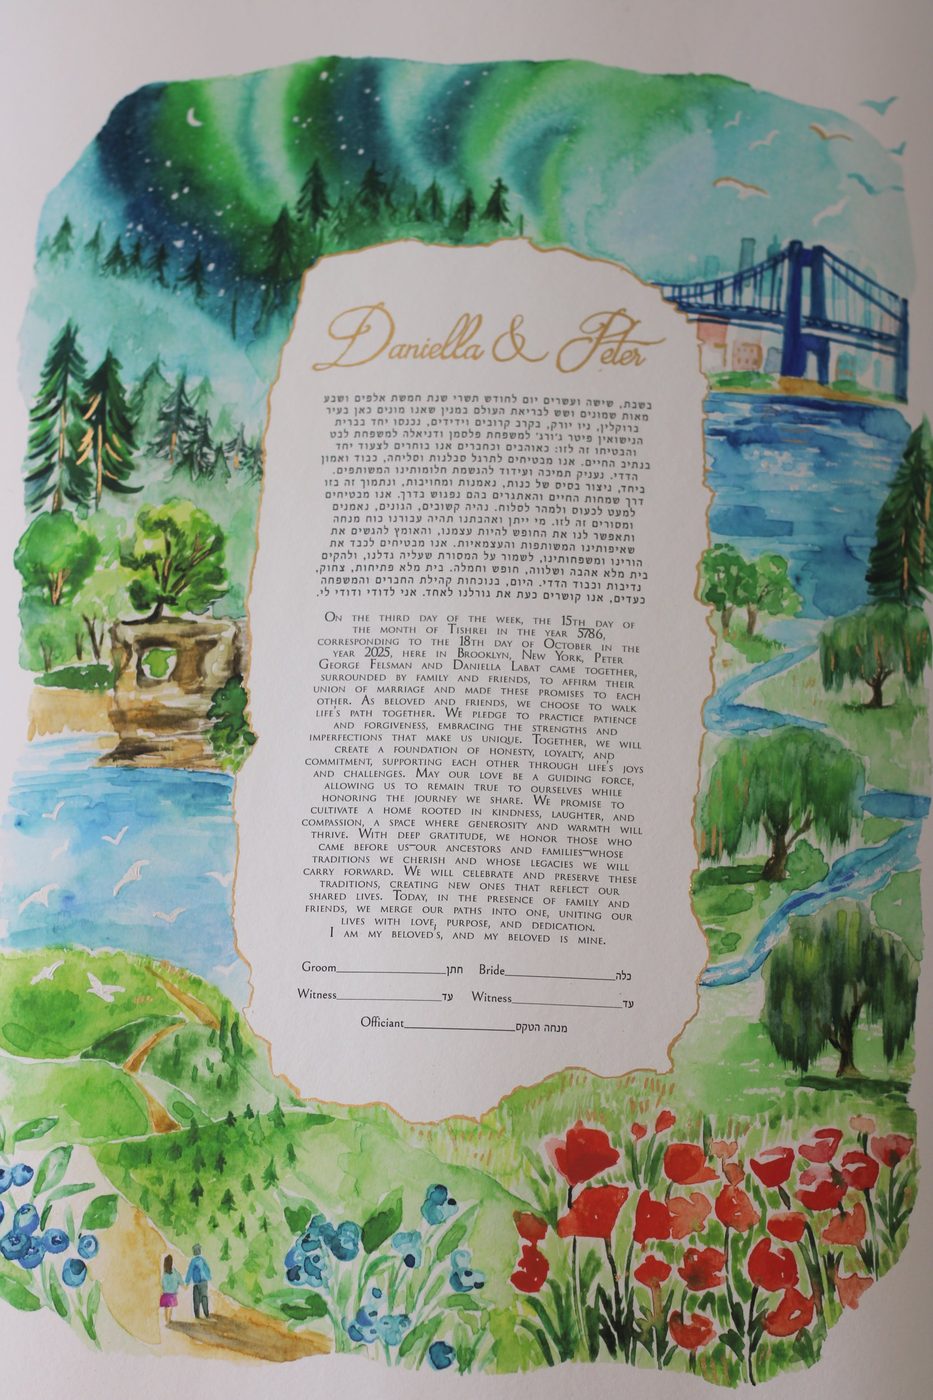 Daniella & Peter
בשבת, שישה ועשרים יום לחודש תשרי שנת חמשת אלפים ושבע
מאות שמונים ושש לבריאת העולם במנין שאנו מונים כאן בעיר
ברוקלין, ניו יורק, בקרב קרובים וידידים, נכנסו יחד בברית
הנישואין פיטר ג'ורג' למשפחת פלסמן ודניאלה למשפחת לבט
והבטיחו זה לזו: כאוהבים וכחברים אנו בוחרים לצעוד יחד
בנתיב החיים. אנו מבטיחים לתרגל סבלנות וסליחה, כבוד ואמון
הדדי. נעניק תמיכה ועידוד להגשמת חלומותינו המשותפים.
ביחד, ניצור בסיס של כנות, נאמנות ומחויבות, ונתמוך זה בזו
דרך שמחות החיים והאתגרים בהם נפגוש בדרך. אנו מבטיחים
למעט לכעוס ולמהר לסלוח. נהיה קשובים, הגונים, נאמנים
ומסורים זה לזו. מי ייתן ואהבתנו תהיה עבורנו כוח מנחה
ותאפשר לנו את החופש להיות עצמנו, והאומץ להגשים את
שאיפותינו המשותפות והעצמאיות. אנו מבטיחים לכבד את
הורינו ומשפחותינו, לשמור על המסורת שעליה גדלנו, ולהקים
בית מלא אהבה ושלווה, חופש וחמלה. בית מלא פתיחות, צחוק,
נדיבות וכבוד הדדי. היום, בנוכחות קהילת החברים והמשפחה
כעדים, אנו קושרים כעת את גורלנו לאחד. אני לדודי ודודי לי.
On the third day of the week, the 15th day of
the month of Tishrei in the year 5786,
corresponding to the 18th day of October in the
year 2025, here in Brooklyn, New York, Peter
George Felsman and Daniella Labat came together,
surrounded by family and friends, to affirm their
union of marriage and made these promises to each
other. As beloved and friends, we choose to walk
life's path together. We pledge to practice patience
and forgiveness, embracing the strengths and
imperfections that make us unique. Together, we will
create a foundation of honesty, loyalty, and
commitment, supporting each other through life's joys
and challenges. May our love be a guiding force,
allowing us to remain true to ourselves while
honoring the journey we share. We promise to
cultivate a home rooted in kindness, laughter, and
compassion, a space where generosity and warmth will
thrive. With deep gratitude, we honor those who
came before us—our ancestors and families—whose
traditions we cherish and whose legacies we will
carry forward. We will celebrate and preserve these
traditions, creating new ones that reflect our
shared lives. Today, in the presence of family and
friends, we merge our paths into one, uniting our
lives with love, purpose, and dedication.
I am my beloved's, and my beloved is mine.
Groom חתן Bride כלה
Witness עד Witness עד
Officiant מנחה הטקס